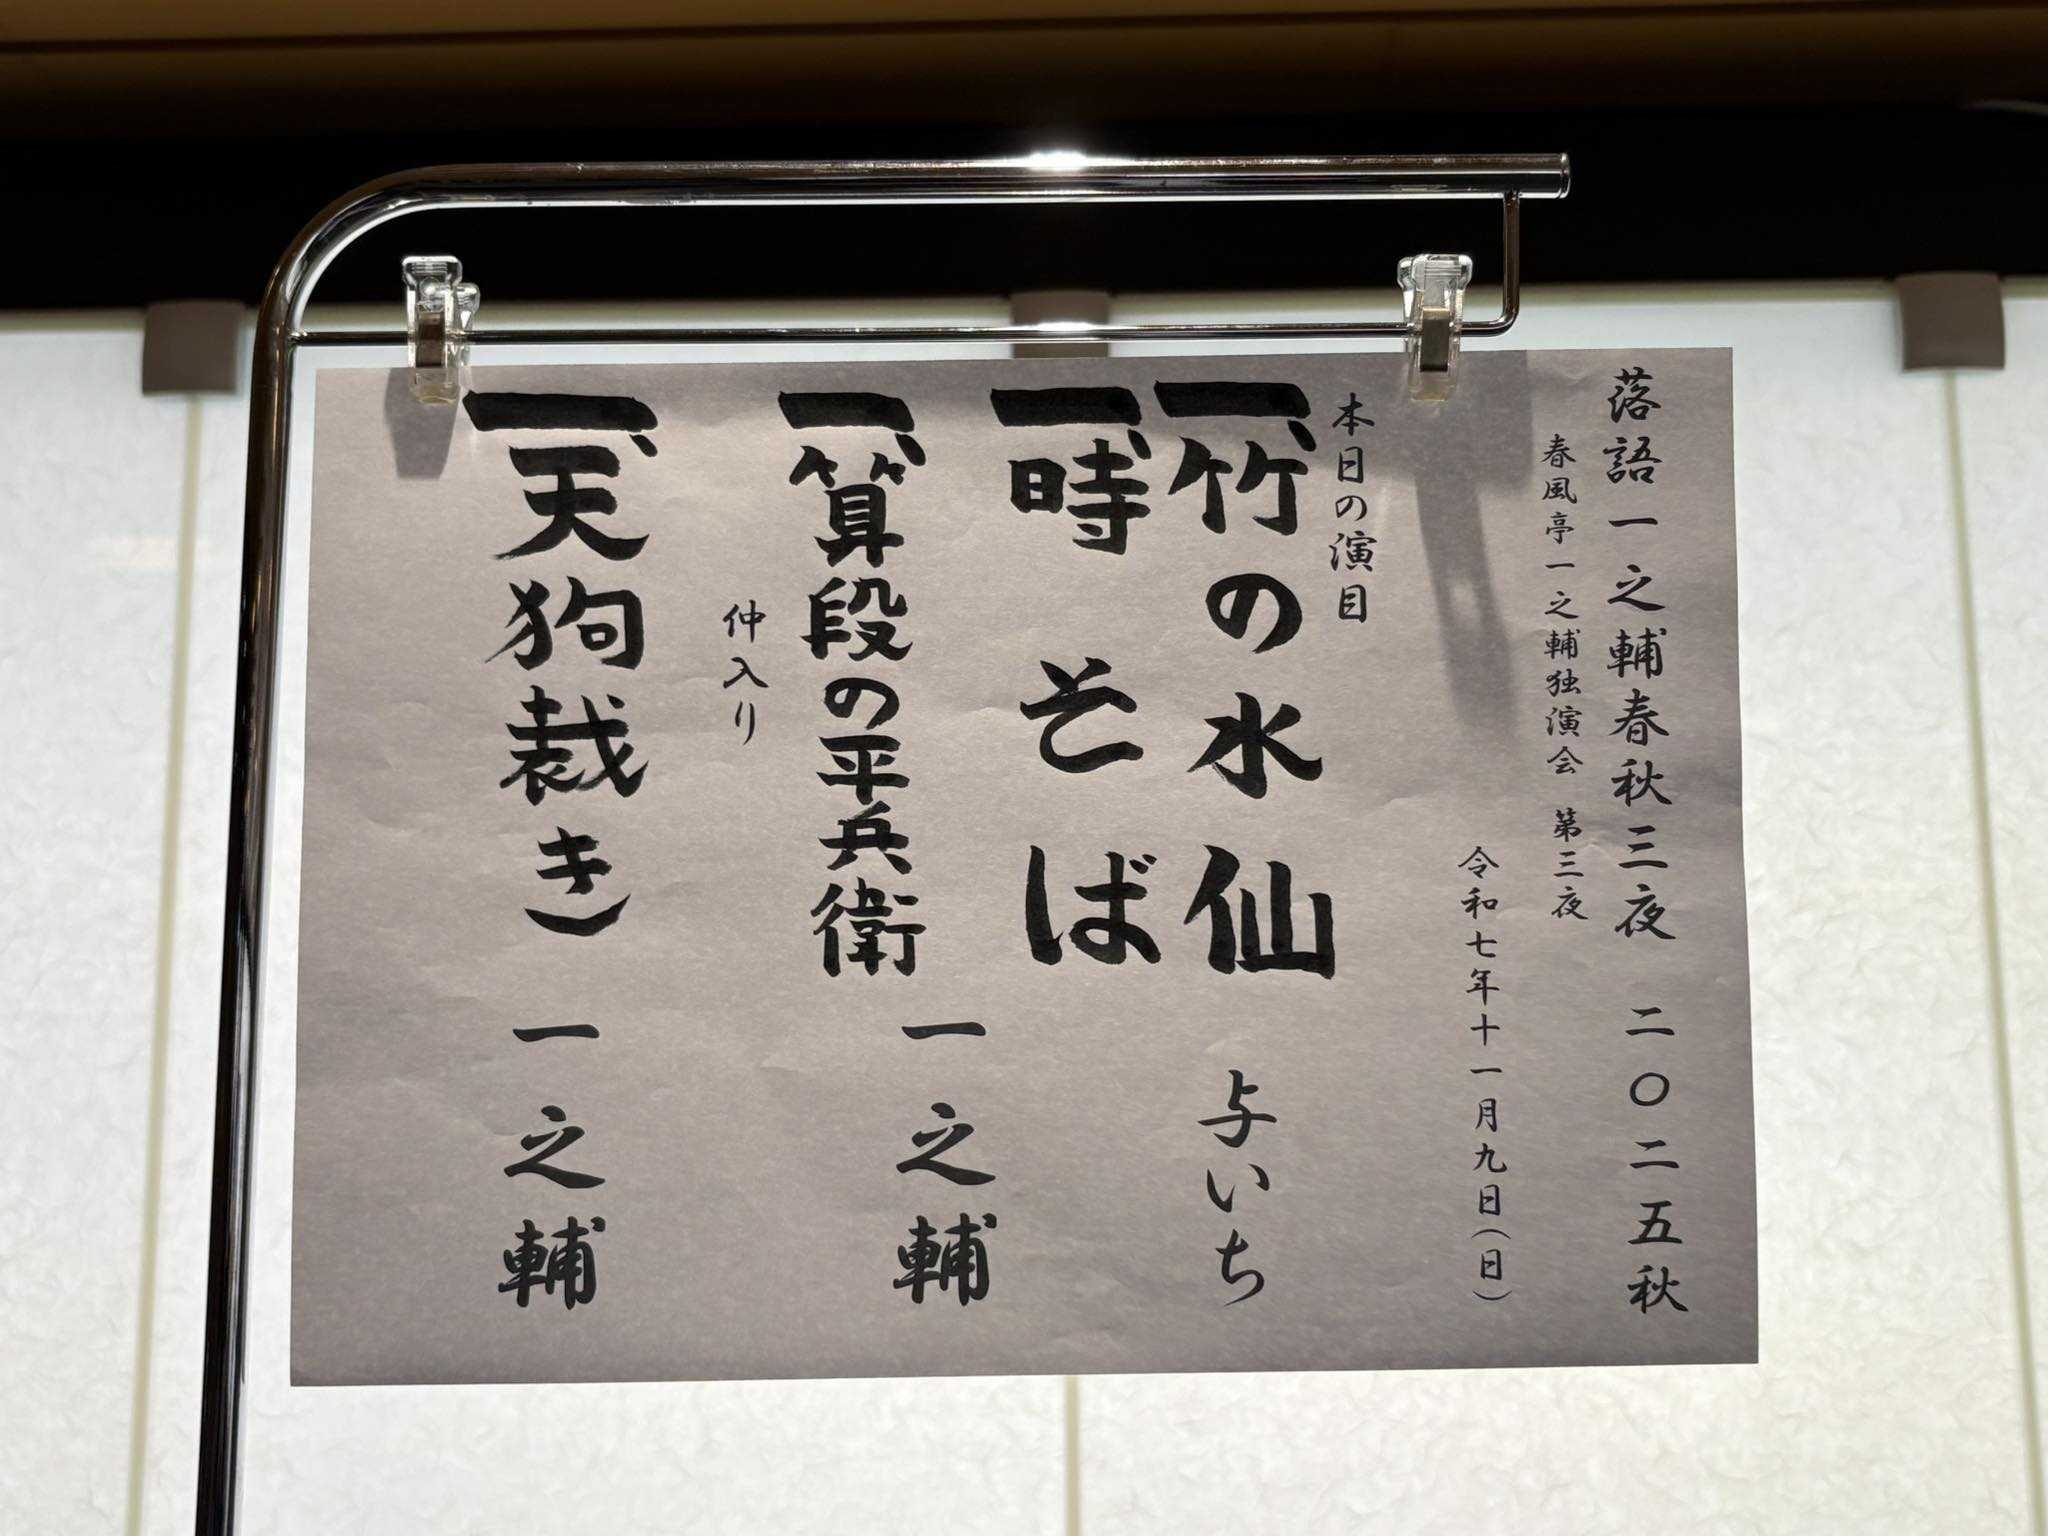 落語一之輔春秋三夜 二〇二五秋
春風亭一之輔独演会 第三夜
令和七年十一月九日(日)
本日の演目
一、竹の水仙 与いち
一、時そば
一、算段の平兵衛 一之輔
仲入り
一、天狗裁き 一之輔